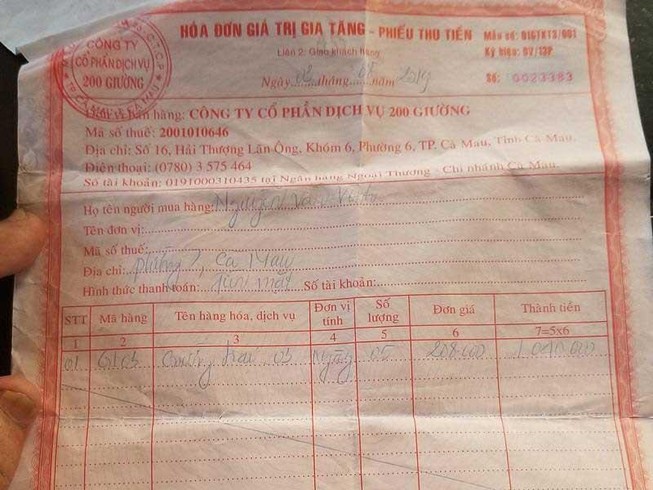 CÔNG TY
CỔ PHẦN DỊCH VỤ
200 GIƯỜNG
HÓA ĐƠN GIÁ TRỊ GIA TĂNG - PHIẾU THU TIỀN
Mẫu số: 01GTKT3/001
Liên 2: Giao khách hàng
Ký hiệu: DV/13P
Ngày 02 tháng năm 2014
Số: 0023383
bán hàng: CÔNG TY CỔ PHẦN DỊCH VỤ 200 GIƯỜNG
Mã số thuế: 2001010646
Địa chỉ: Số 16, Hải Thượng Lãn Ông, Khóm 6, Phường 6, TP. Cà Mau, Tỉnh Cà Mau.
Điện thoại: (0780) 3 575 464
Số tài khoản: 0191000310435 tại Ngân hàng Ngoại Thương - Chi nhánh Cà Mau.
Họ tên người mua hàng: Nguyễn Văn
Tên đơn vị:
Mã số thuế:
Địa chỉ: phường 7, Cà Mau
Hình thức thanh toán: Tiền mặt Số tài khoản:
STT Mã hàng Tên hàng hóa, dịch vụ Đơn vị tính Số lượng Đơn giá Thành tiền
1 2 3 4 5 6 7=5x6
01 G103 05 Ngày 05 208.000 1.040.000